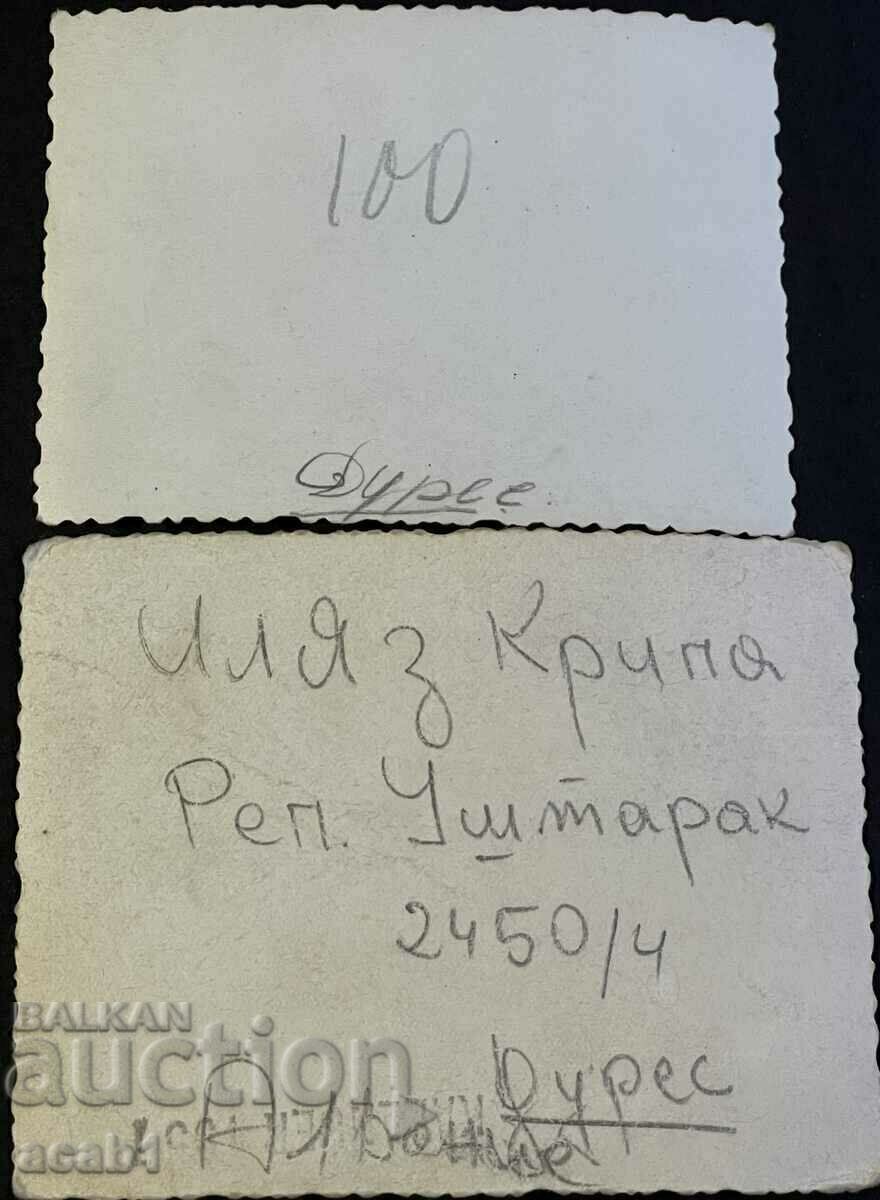 100
Дурес.
Иляз Крипа
Реп. Уштарак
2450/4
Дурес
BALKAN
auction
acab1